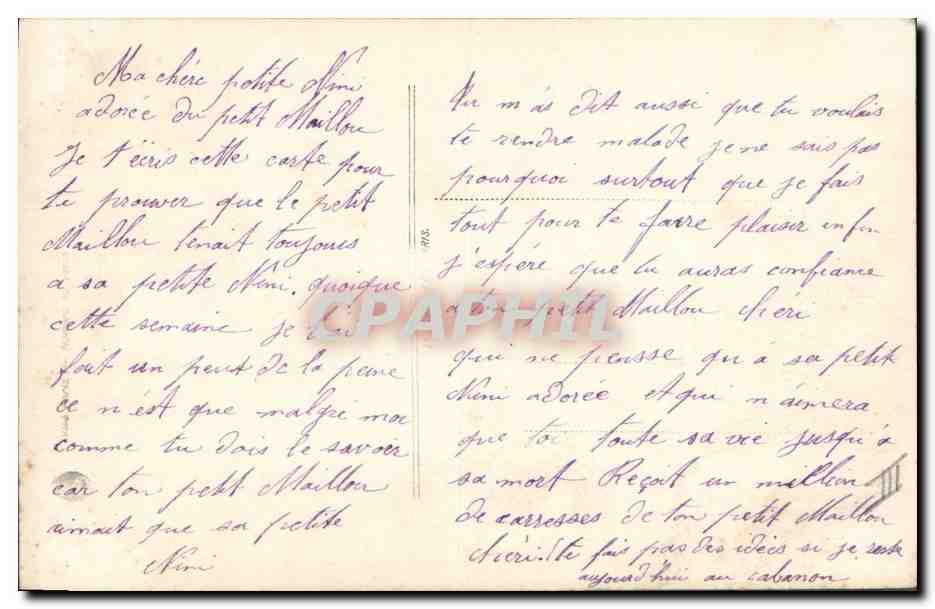 Ma chère petite Nini
adorée du petit Maillou
Je t'écris cette carte pour
te prouver que le petit
Maillou tenait toujours
a sa petite Nini. quoique
cette semaine je t'ai
fait un peut de la peine
ce n'ést que malgré moi
comme tu dois le savoir
car ton petit Maillou
aimait que sa petite
Nini
Tu m'ás dit aussi que tu voulais
te rendre malade je ne sais pas
pourquoi surtout que je fais
tout pour te faire plaisir enfin
j'espére que tu auras confiance
a ton petit Maillou chéri
qui ne pensse qu'á sa petit
Nini adorée et qui n'áimera
que toi toute sa vie jusqu'á
sa mort Reçoit un million
de carresses de ton petit Maillou
chéri. te fais pas des idées si je reste
aujourd'hui au cabanon
RIS.
CPAPHIL